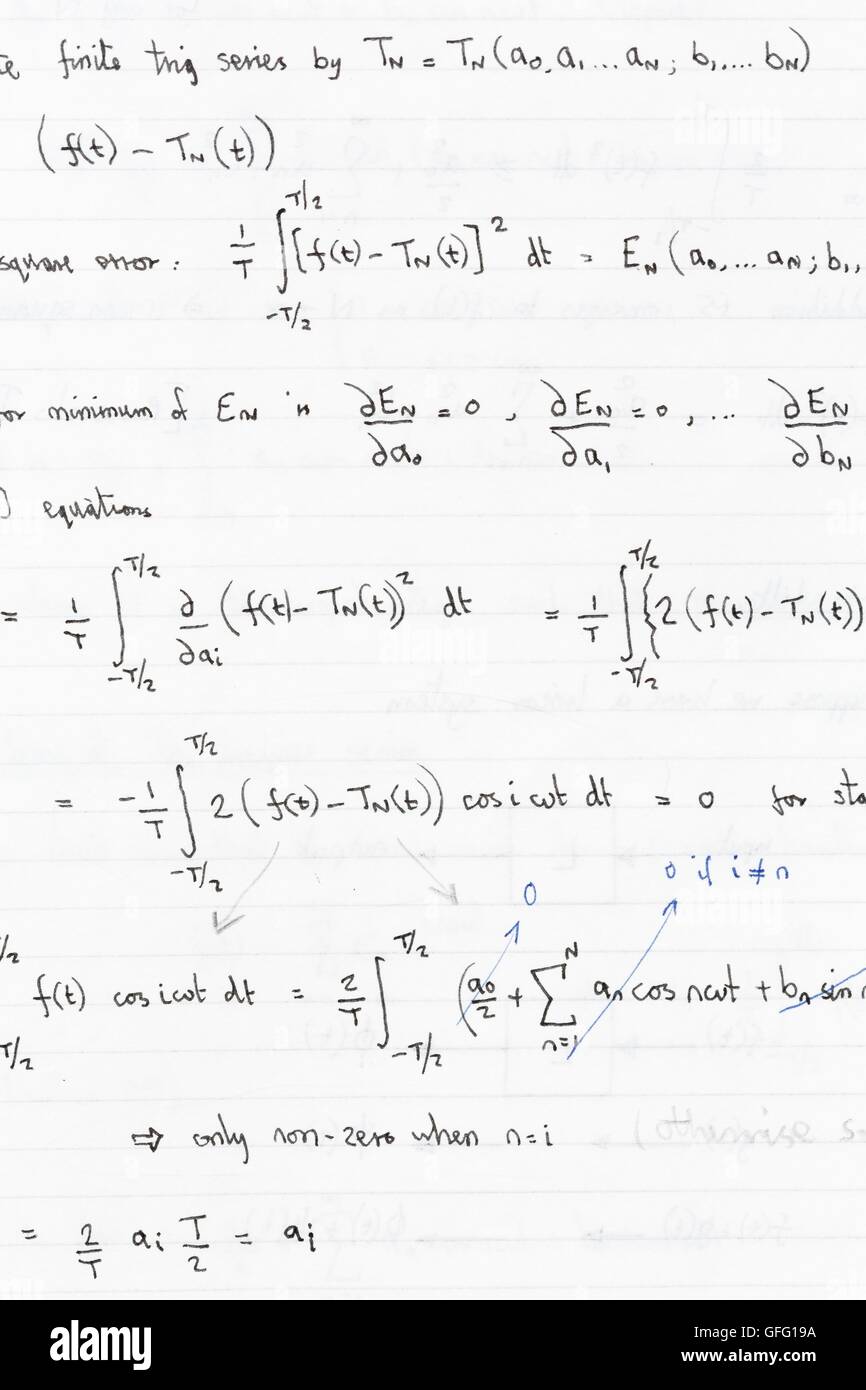 finite trig series by T_N = T_N(a_0, a_1 ... a_N; b_1, ... b_N)
(f(t) - T_N(t))
square error: 1/T ∫_{-T/2}^{T/2} [f(t) - T_N(t)]^2 dt = E_N(a_0, ... a_N; b_1,
or minimum of E_N is ∂E_N/∂a_0 = 0, ∂E_N/∂a_1 = 0, ... ∂E_N/∂b_N
) equations
= 1/T ∫_{-T/2}^{T/2} ∂/∂a_i (f(t) - T_N(t))^2 dt = 1/T ∫_{-T/2}^{T/2} {2(f(t) - T_N(t))
= -1/T ∫_{-T/2}^{T/2} 2(f(t) - T_N(t)) cos iωt dt = 0 for sta
0 0 if i ≠ n
T/2 f(t) cos iωt dt = 2/T ∫_{-T/2}^{T/2} (a_0/2 + Σ_{n=1}^{N} a_n cos nωt + b_n sin n
⇒ only non-zero when n=i
= 2/T a_i T/2 = a_i
alamy
Image ID: GFG19A
www.alamy.com